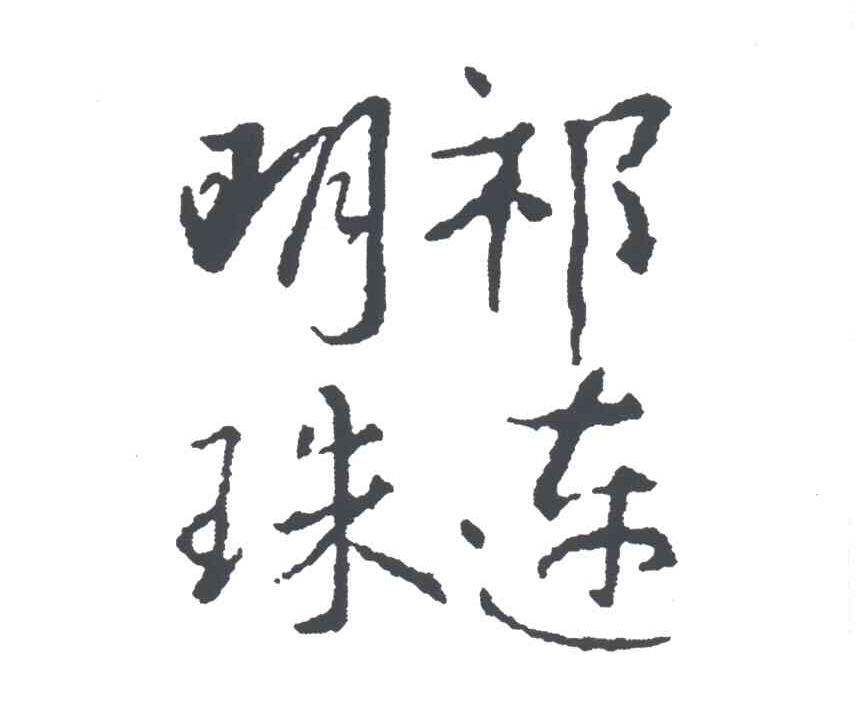 祁连
明珠